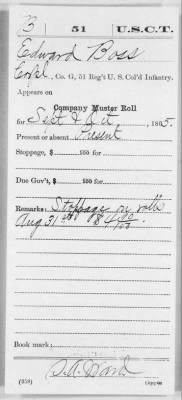 B 51 U.S.C.T.
Edward Boss
Corpl., Co. G, 51 Reg't U. S. Col'd Infantry.
Appears on
Company Muster Roll
for Sept & Oct, 1865.
Present or absent Present
Stoppage, $ 100 for
Due Gov't, $ 100 for
Remarks: Stoppage on rolls
Aug 31st
Book mark:
(358) Copyist.